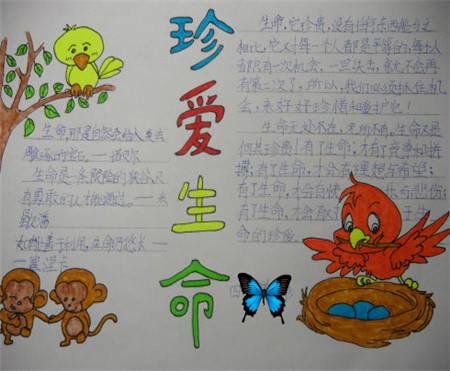 珍爱生命
生命,它珍贵,没有任何东西能与之
相比,它对每一个人都是平等的,每个人
都只有一次机会,一旦失去,就不会再
有第二次了,所以,我们必须抓住机
会,来好好珍惜和爱护它!
生命无处不在,无所不有,生命又是
何其珍贵!有了生命,才有了竞争和拼
搏;有了生命,才会有理想与希望;
有了生命,才会有快 与悲伤;
有了生命,才会有 生
命的珍爱。
生命,那是自然 给人类去
雕琢的宝石。——诺贝尔
生命是一条 险的狭谷,只
有勇敢的人才能通过。——米
歇潘
如 善于利用,生命乃悠长——
—塞涅卡